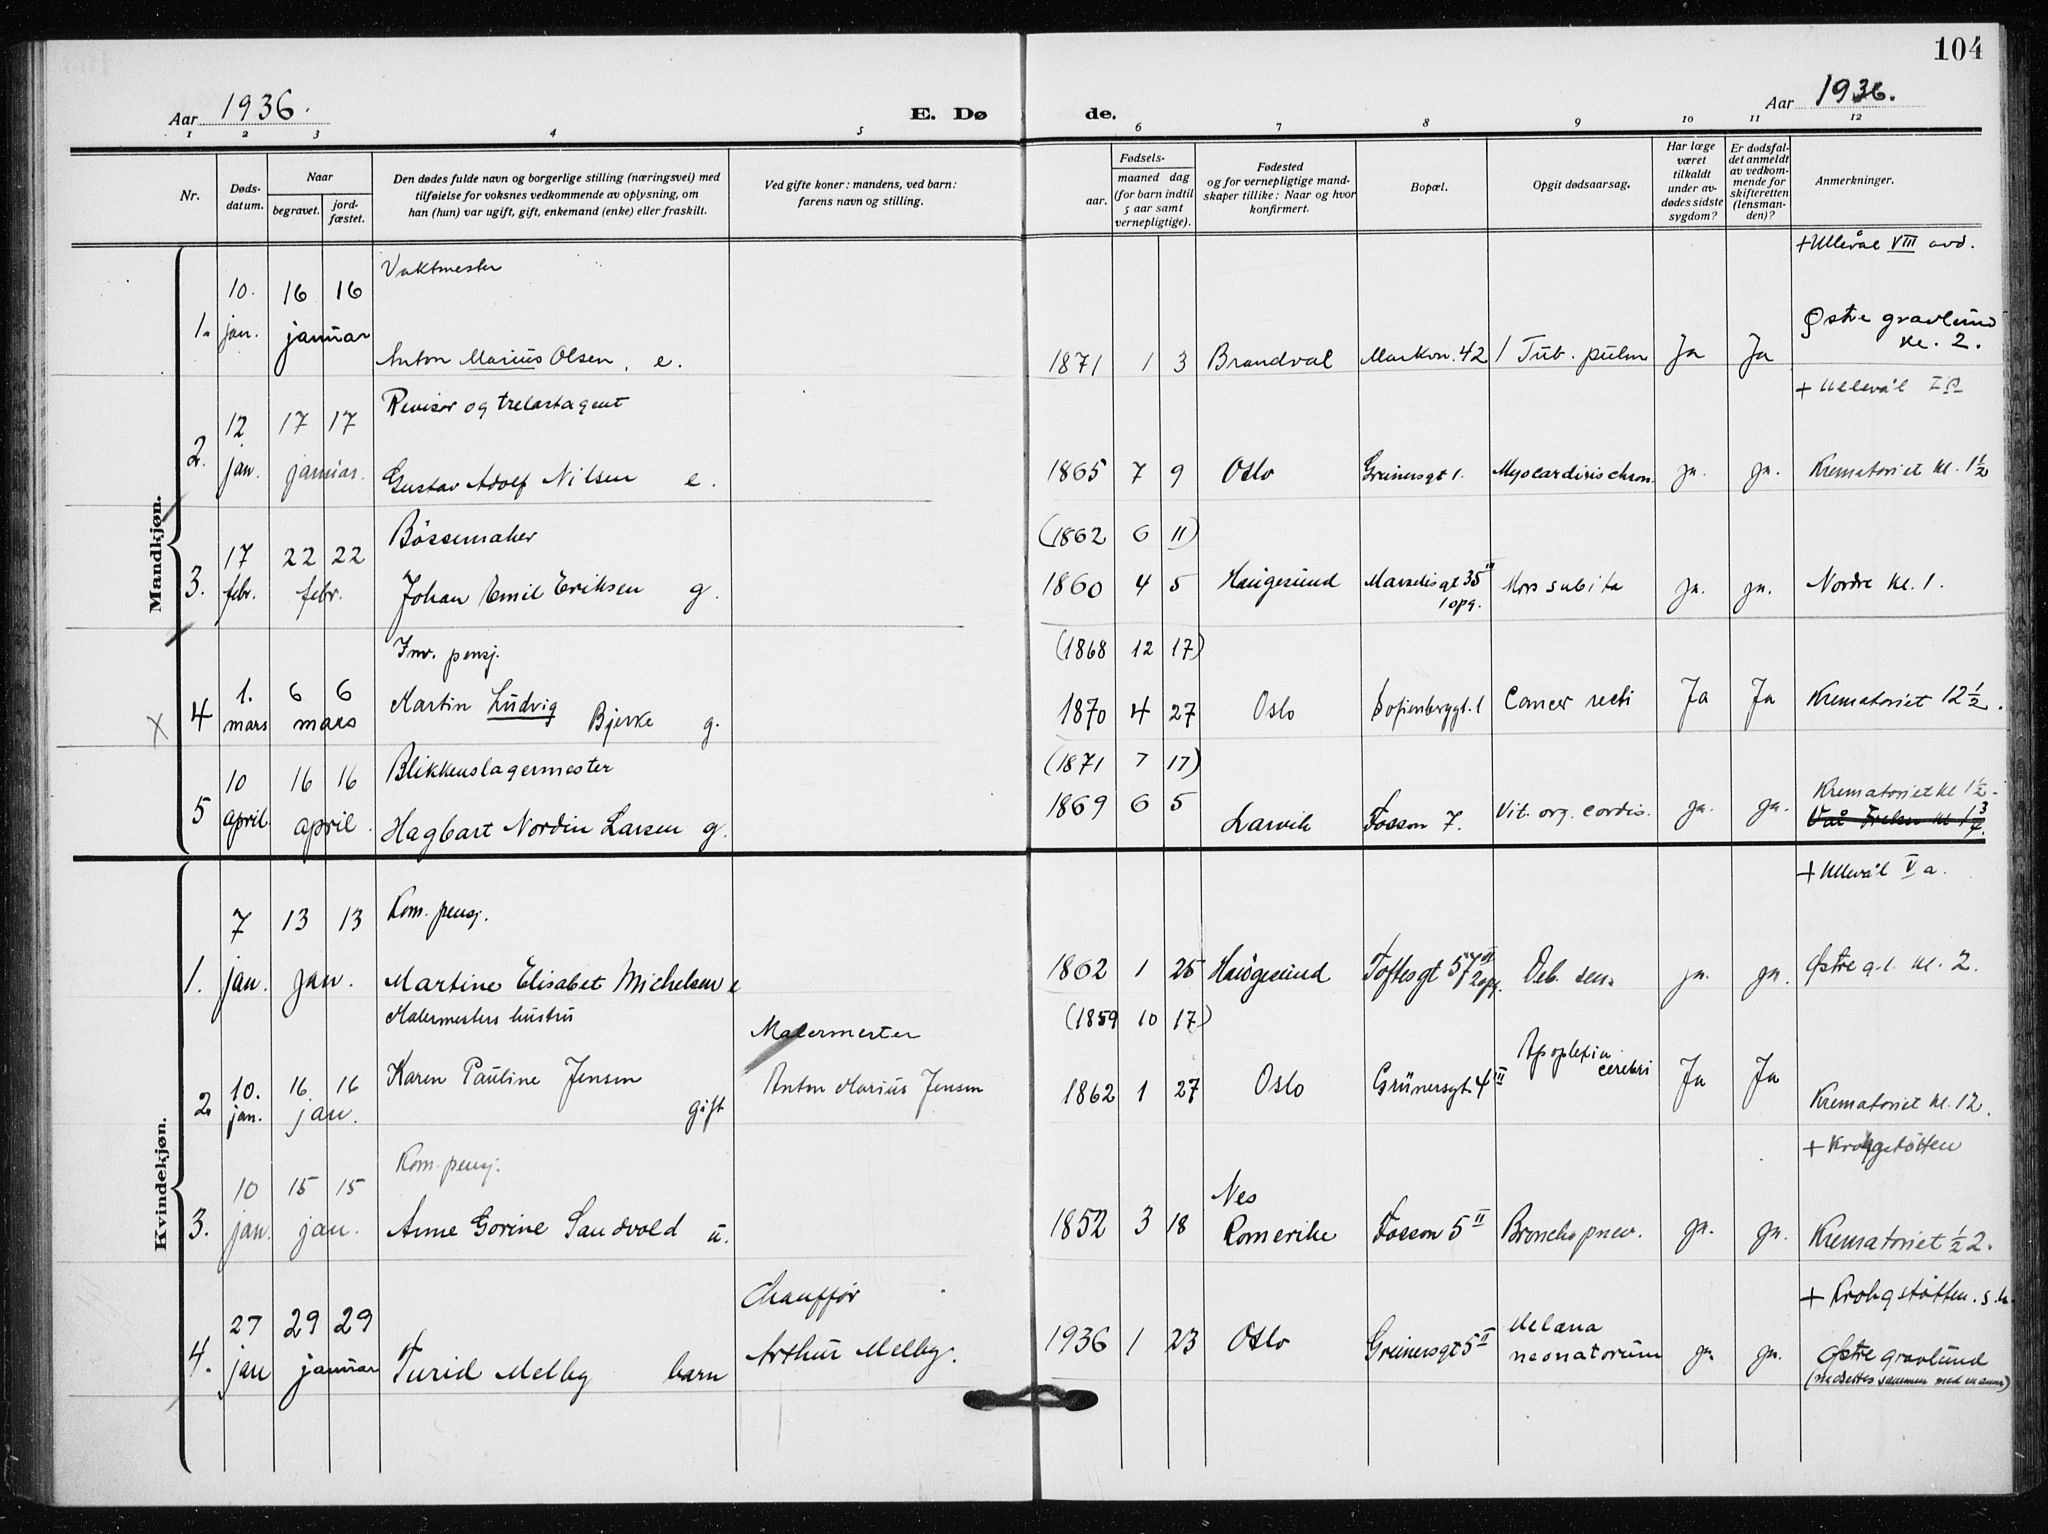 104
Aar 1936.
E. Dø
de.
Aar 1936.
1 2 3 4 5 6 7 8 9 10 11 12
Nr.
Døds-
datum.
Naar
begravet.
jord-
fæstet.
Den dødes fulde navn og borgerlige stilling (næringsvei) med
tilføielse for voksnes vedkommende av oplysning, om
han (hun) var ugift, gift, enkemand (enke) eller fraskilt.
Ved gifte koner: mandens, ved barn:
farens navn og stilling.
Fødsels-
aar.
maaned dag
(for barn indtil
5 aar samt
vernepligtige).
Fødested
og for vernepligtige mand-
skaper tillike: Naar og hvor
konfirmert.
Bopæl.
Opgit dødsaarsag.
Har læge
været
tilkaldt
under av-
dødes sidste
sygdom?
Er dødsfal-
det anmeldt
av vedkom-
mende for
skifteretten
(lensman-
den)?
Anmerkninger.
Mandkjøn.
+ Ullevål VIII avd.
Vaktmester
10. 16 16
1. jan. januar
Anton Marius Olsen, e.
1871 1 3 Brandval Markvn. 42 Tub. pulm Ja Ja
Østre gravlund
kl. 2.
+ Ullevål
Revisor og trelastagent
12 17 17
2. jan. januar.
Gustav Adolf Nilsen e.
1865 7 9 Oslo Grünersgt 1. Myocarditis chron. ja. ja. Krematoriet kl. 1 1/2
Bössemaker
(1862 6 11)
17 22 22
3. febr. febr.
Johan Emil Eriksen g.
1860 4 5 Haugesund Marselisgt 35 III
1 opg.
Mors subita ja. ja. Nordre kl. 1.
Inv. pensj.
(1868 12 17)
1. 6 6
4 mars mars
Martin Ludvig Bjerke g.
1870 4 27 Oslo Sofienberggt. 1 Cancer recti Ja Ja Krematoriet 12 1/2.
Blikkenslagermester
(1871 7 17)
10 16 16
5 april april.
Hagbart Nordin Larsen g.
1869 6 5 Larvik Fossvn 7. Vit. org. cordis. ja. ja.
Krematoriet kl 1 1/2
Kvindekjøn.
+ Ullevål V a.
Kom. pensj.
7 13 13
1. jan. jan.
Martine Elisabet Michelsen e
1862 1 25 Haugesund Toftesgt 57 II
2 opg.
Deb. sen. ja. ja. Østre g.l. kl. 2.
Malermesters hustru
Malermester
(1859 10 17)
10. 16. 16
2. jan. jan.
Karen Pauline Jensen
gift
Anton Marius Jensen
1862 1 27 Oslo Grünersgt. 4 III
Apoplexia
cerebri
Ja Ja Krematoriet kl. 12.
+ Krohgstøtten
Kom. pensj.
10 15 15
3. jan. jan.
Anne Gorine Sandvold u.
1852 3 18
Nes
Romerike
Fossvn 5 II Bronchopnev. ja. ja. Krematoriet 1/2 2.
+ Krohgstøtten. s.h.
Chauffør
27 29 29
4. jan januar
Turid Melby barn
Arthur Melby.
1936 1 23 Oslo Grünersgt 5 II
Melæna
neonatorum
ja. ja.
Østre gravlund